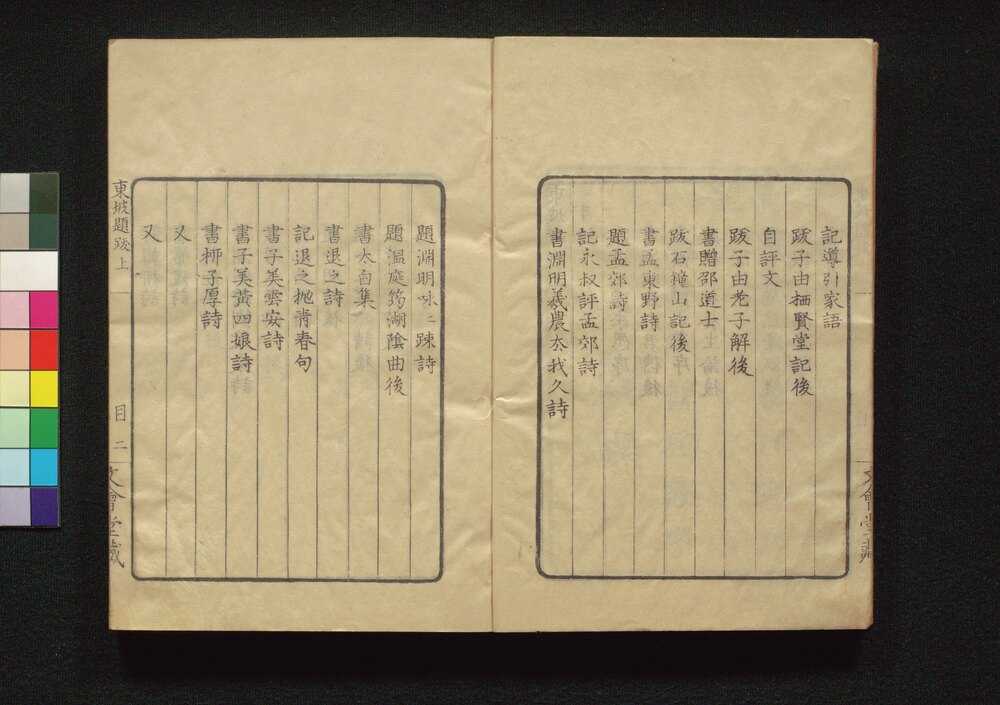 記導引家語
跋子由栖賢堂記後
自評文
跋子由老子解後
書贈邵道士
跋石鐘山記後
書孟東野詩
題孟郊詩
記永叔評孟郊詩
書淵明羲農去我久詩
文會堂藏
題淵明咏二踈詩
題溫庭筠湖陰曲後
書太白集
書退之詩
記退之抛青春句
書子美雲安詩
書子美黃四娘詩
書柳子厚詩
又
又
東坡題跋上
目二
文會堂藏